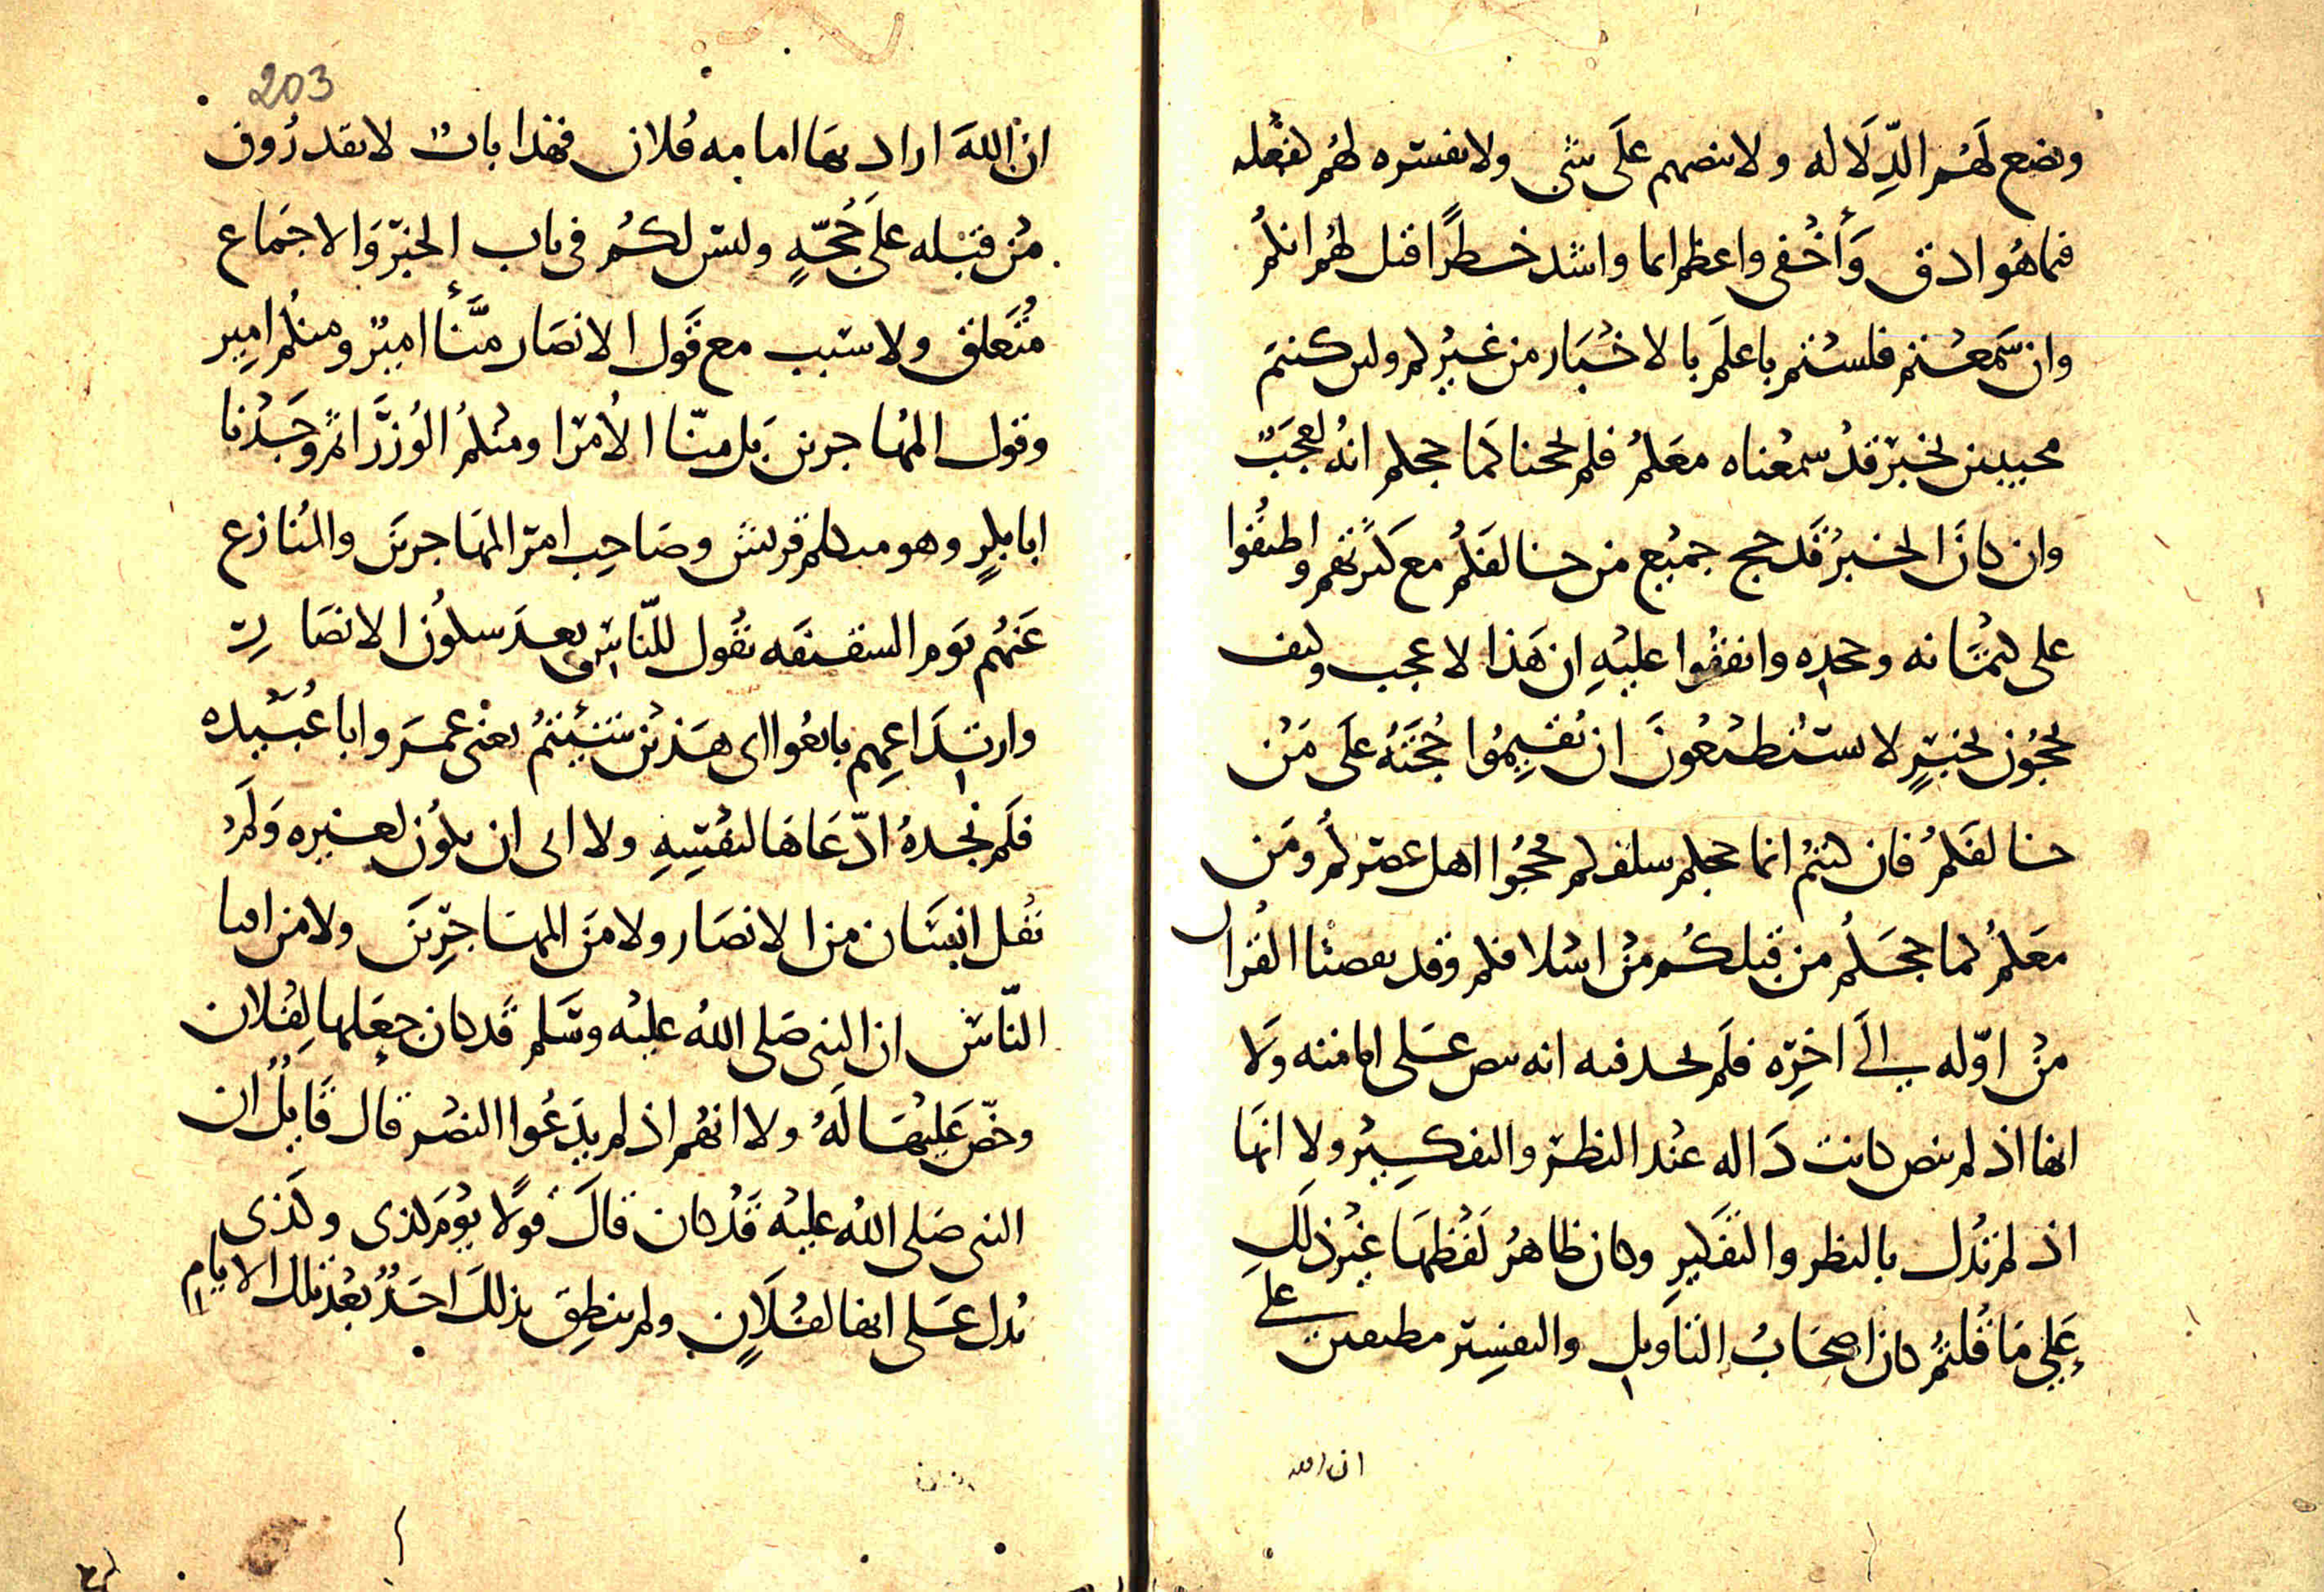 ويضع لهم الدلالة ولا ينصهم على شي ولا يفسره لهم لفعله
فيما هو ادق وأخفى واعظم اثما واشد خطرا قيل لهم انكم
وان سمعتم فلستم باعلم بالاخبار من غيركم ولين كنتم
محجوجين بخبر قد سمعناه معكم فلم لححنا كما حججكم انه لعجب
وان كان الخبر قد حج جميع من خالفكم مع كثرتهم واطبقوا
على كتمانه وجحده واتفقوا عليه ان هذا لاعجب وكيف
تحجون بخبر لا تستطيعون ان تقيموا حجته على من
خالفكم فان كنتم انما حججكم سلفكم لم يحجوا اهل عصركم ومن
معكم كما حججكم من قبلكم من اسلافكم وقد تقصينا القرآن
من اوله الى اخره فلم نجد فيه اية تنص على امامته ولا
انها اذ لم تنص كانت دالة عند النظر والتفكير ولا انها
اذ لم تدل بالنظر والتفكير وكان ظاهر لفظها غير ذلك
على ما قلتم كان اصحاب التاويل والتفسير مطبقين على
ان الله
203
ان الله اراد بها امامة فلان فهذا باب لا تقدرون
من قبله على حجة وليس لكم في باب الخبر والاجماع
متعلق ولا سبب مع قول الانصار منا امير ومنكم امير
وقول المهاجرين بل منا الامرا ومنكم الوزرا ثم وجدنا
ابا بكر وهو متكلم قريش وصاحب امر المهاجرين والمنازع
عنهم يوم السقيفة يقول للناس بعد سكون الانصار
وارتداعهم بايعوا اى هذين شئتم يعنى عمر وابا عبيده
فلم نجده ادعاها لنفسه ولا ابى ان يكون لغيره ولم
يقل انسان من الانصار ولا من المهاجرين ولا من افنا
الناس ان النبى صلى الله عليه وسلم قد كان جعلها لفلان
وحض عليها له ولا انهم اذ لم يدعوا النص قال قايل ان
النبى صلى الله عليه قد كان قال قولا يوم كذى وكذى
يدل على انها لفلان ولم ينطق بذلك احد بعد تلك الايام